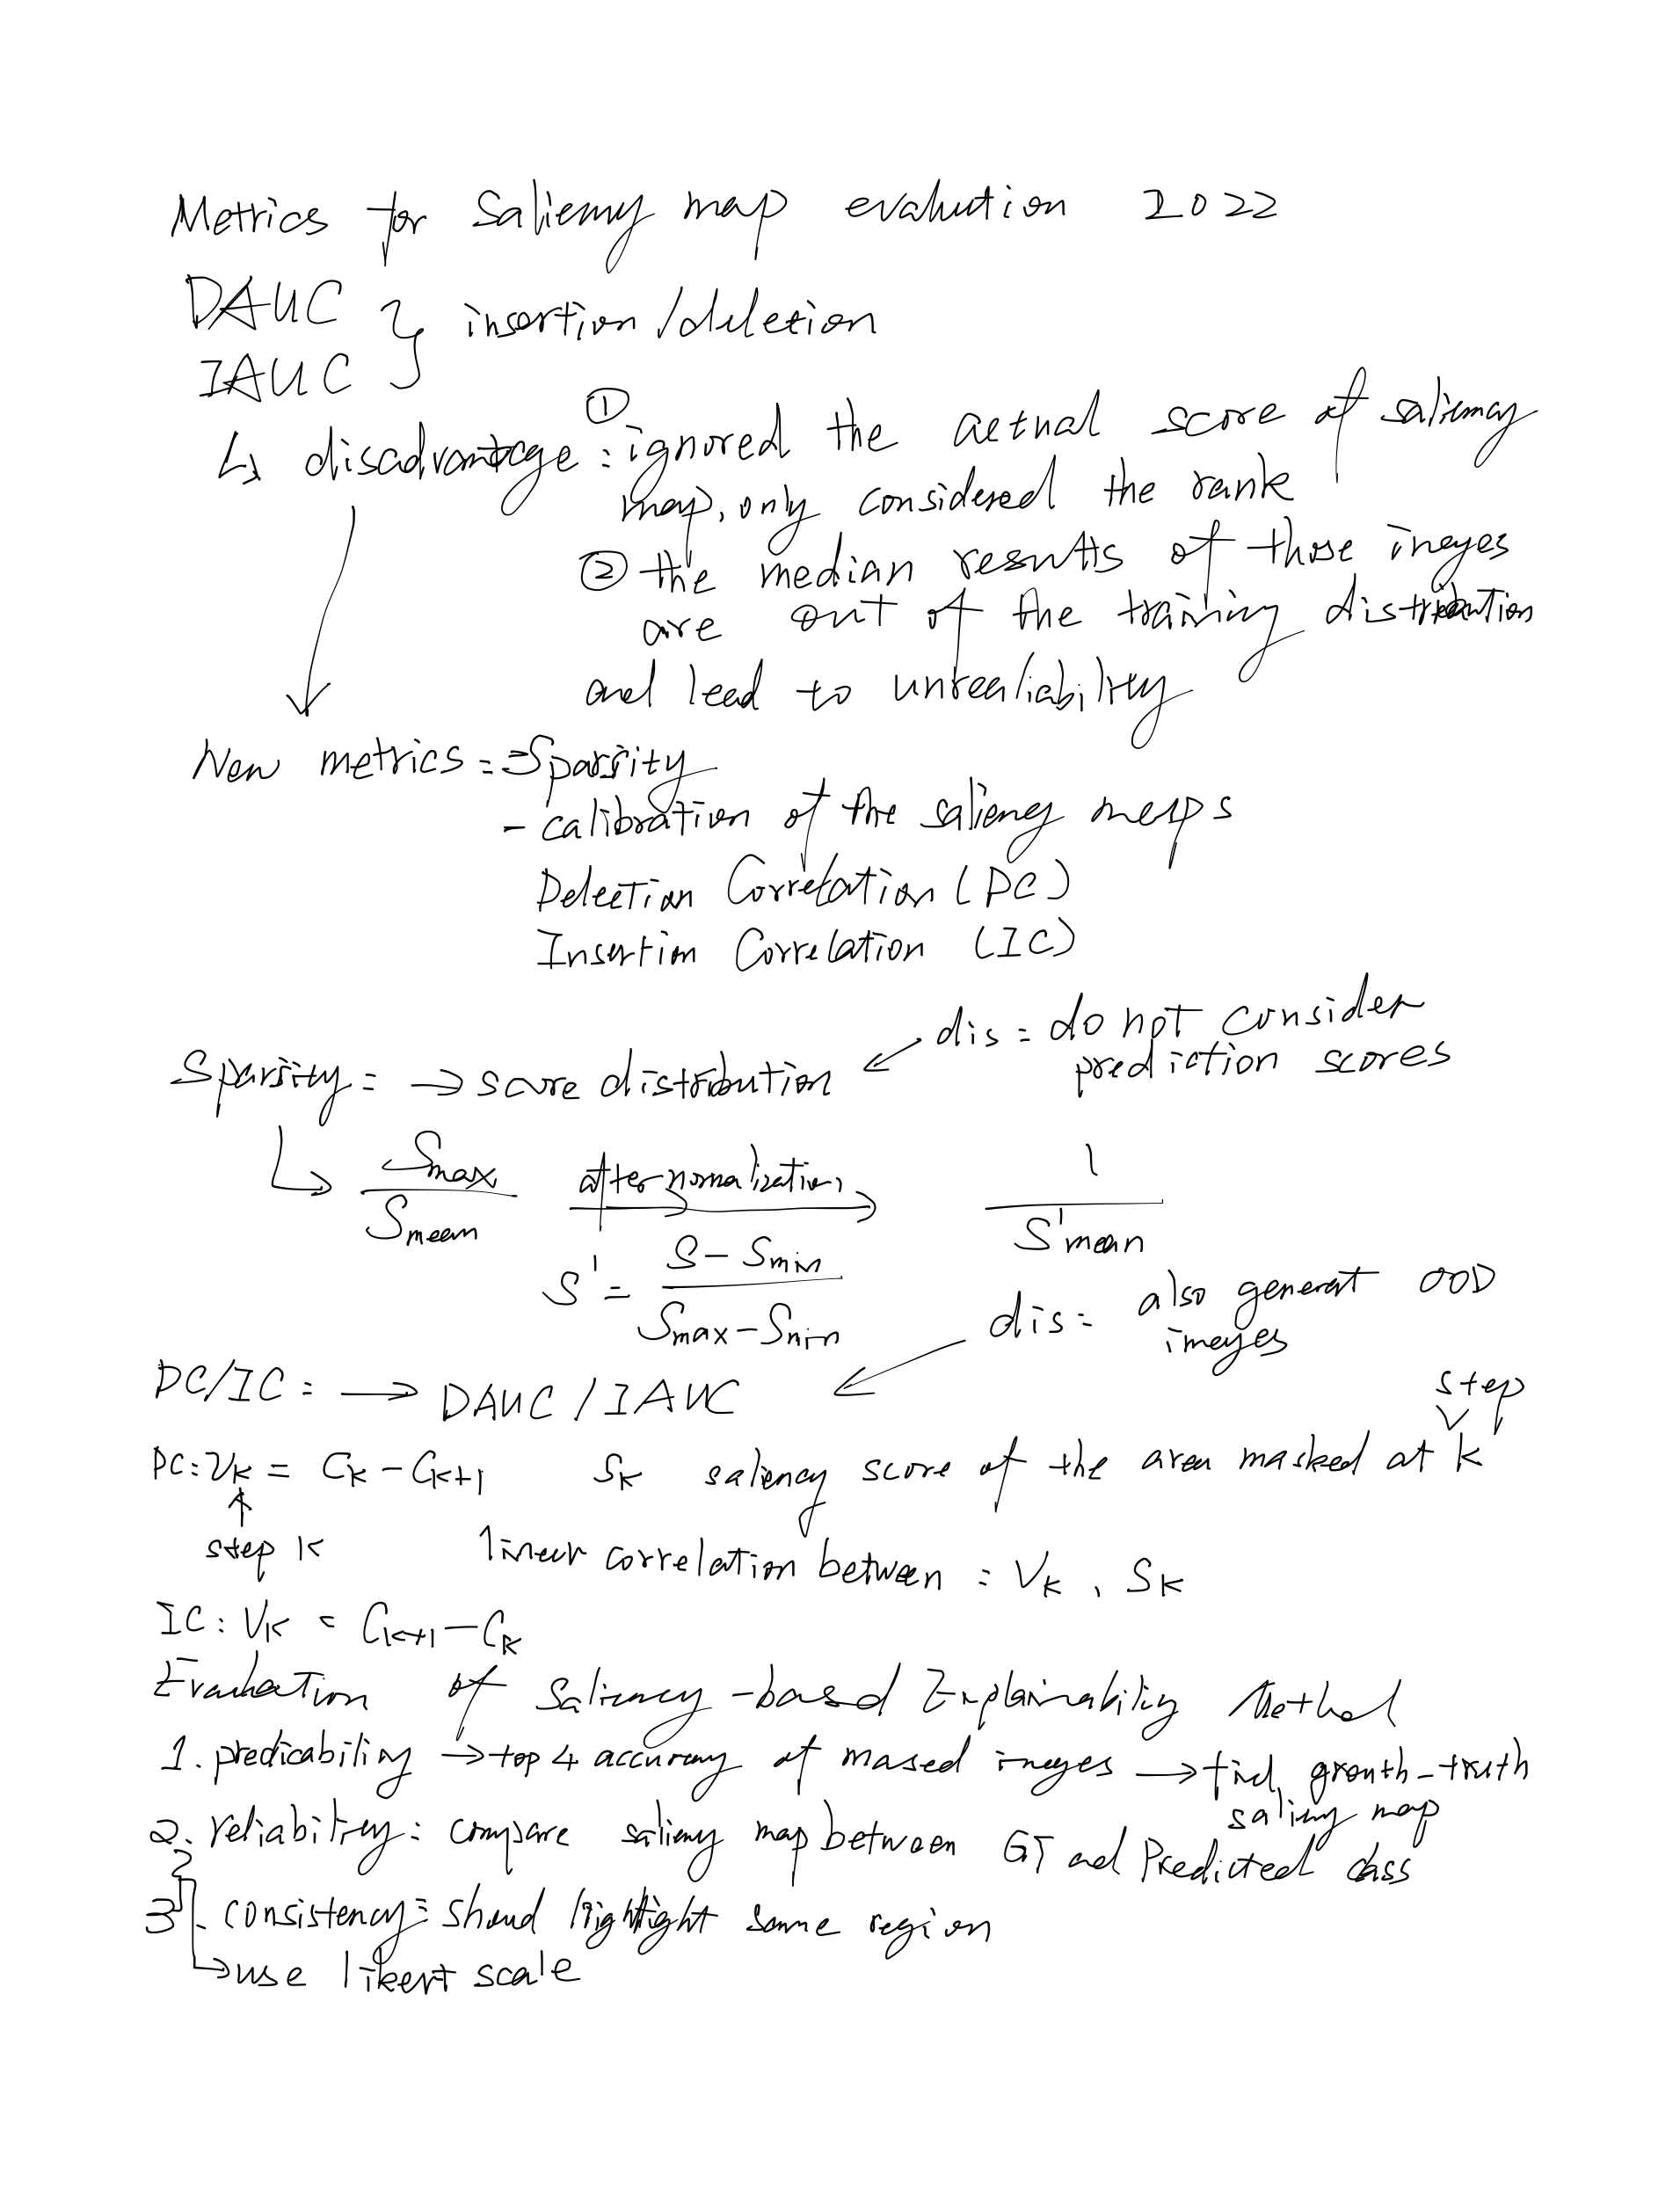 Metrics for Saliency map evalution 2022
DAUC
IAUC } insertion/deletion
↳ disadvantage: ① ignored the actual score of saliency
map, only considered the rank
② the median results of those images
are out of the training distribution
and lead to unrealiability
New metrics: - Sparsity
- calibration of the saliency maps
Deletion Correlation (DC)
Insertion Correlation (IC)
dis: do not consider
prediction scores
Sparsity: → score distribution ←
↳ Smax / Smean after normalization → 1 / S'mean
S' = (S - Smin) / (Smax - Smin)
dis: also generat OOD
images
DC/IC: → DAUC / IAUC ←
step
DC: VK = CK - CK+1 SK saliency score of the area masked at K
↑
step K linear correlation between: VK, SK
IC: VK = CK+1 - CK
Evaluation of Saliency-based Explainability Method
1. predicability → top 4 accuracy of mased images → find grouth-truth
saliency map
2. reliability: compare saliency map between GT and Predicted class
3. consistency: shoud highlight same region
↳ use likert scale